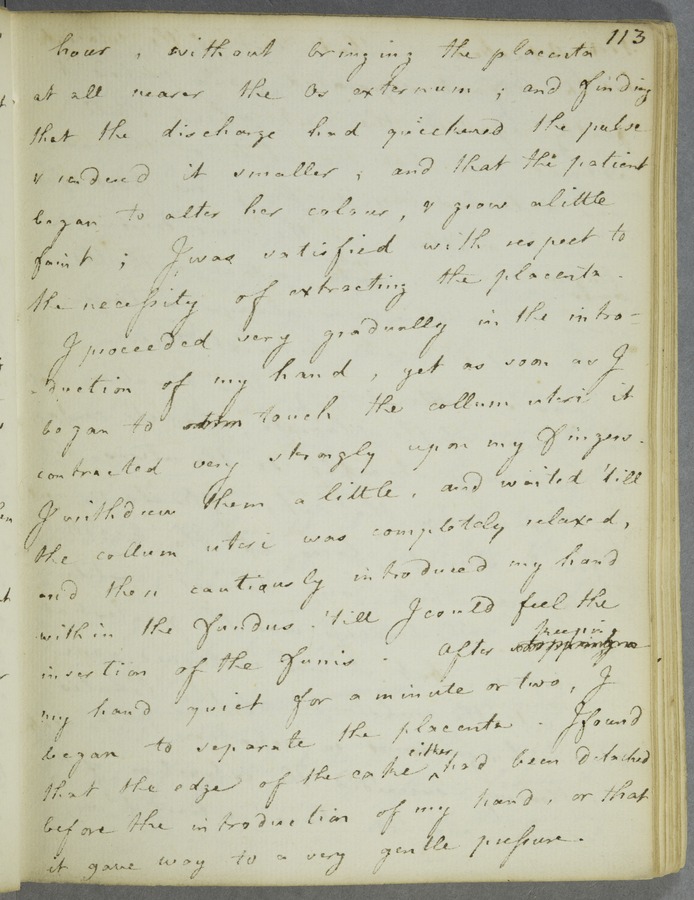 113
hour, without bringing the placenta
at all nearer the Os externum; and finding
that the discharge had quickened the pulse
& rendered it smaller; and that the patient
began to alter her colour, & grow a little
faint; I was satisfied with respect to
the necessity of extracting the placenta.
I proceeded very gradually in the intro-
duction of my hand, yet as soon as I
began to touch the collum uteri it
contracted very strongly upon my fingers.
I withdrew them a little, and waited 'till
the collum uteri was completely relaxed,
and then cautiously introduced my hand
within the fundus 'till I could feel the
insertion of the funis. After keeping
my hand quiet for a minute or two, I
began to separate the placenta. I found
that the edge of the cake either had been detached
before the introduction of my hand, or that
it gave way to a very gentle pressure.